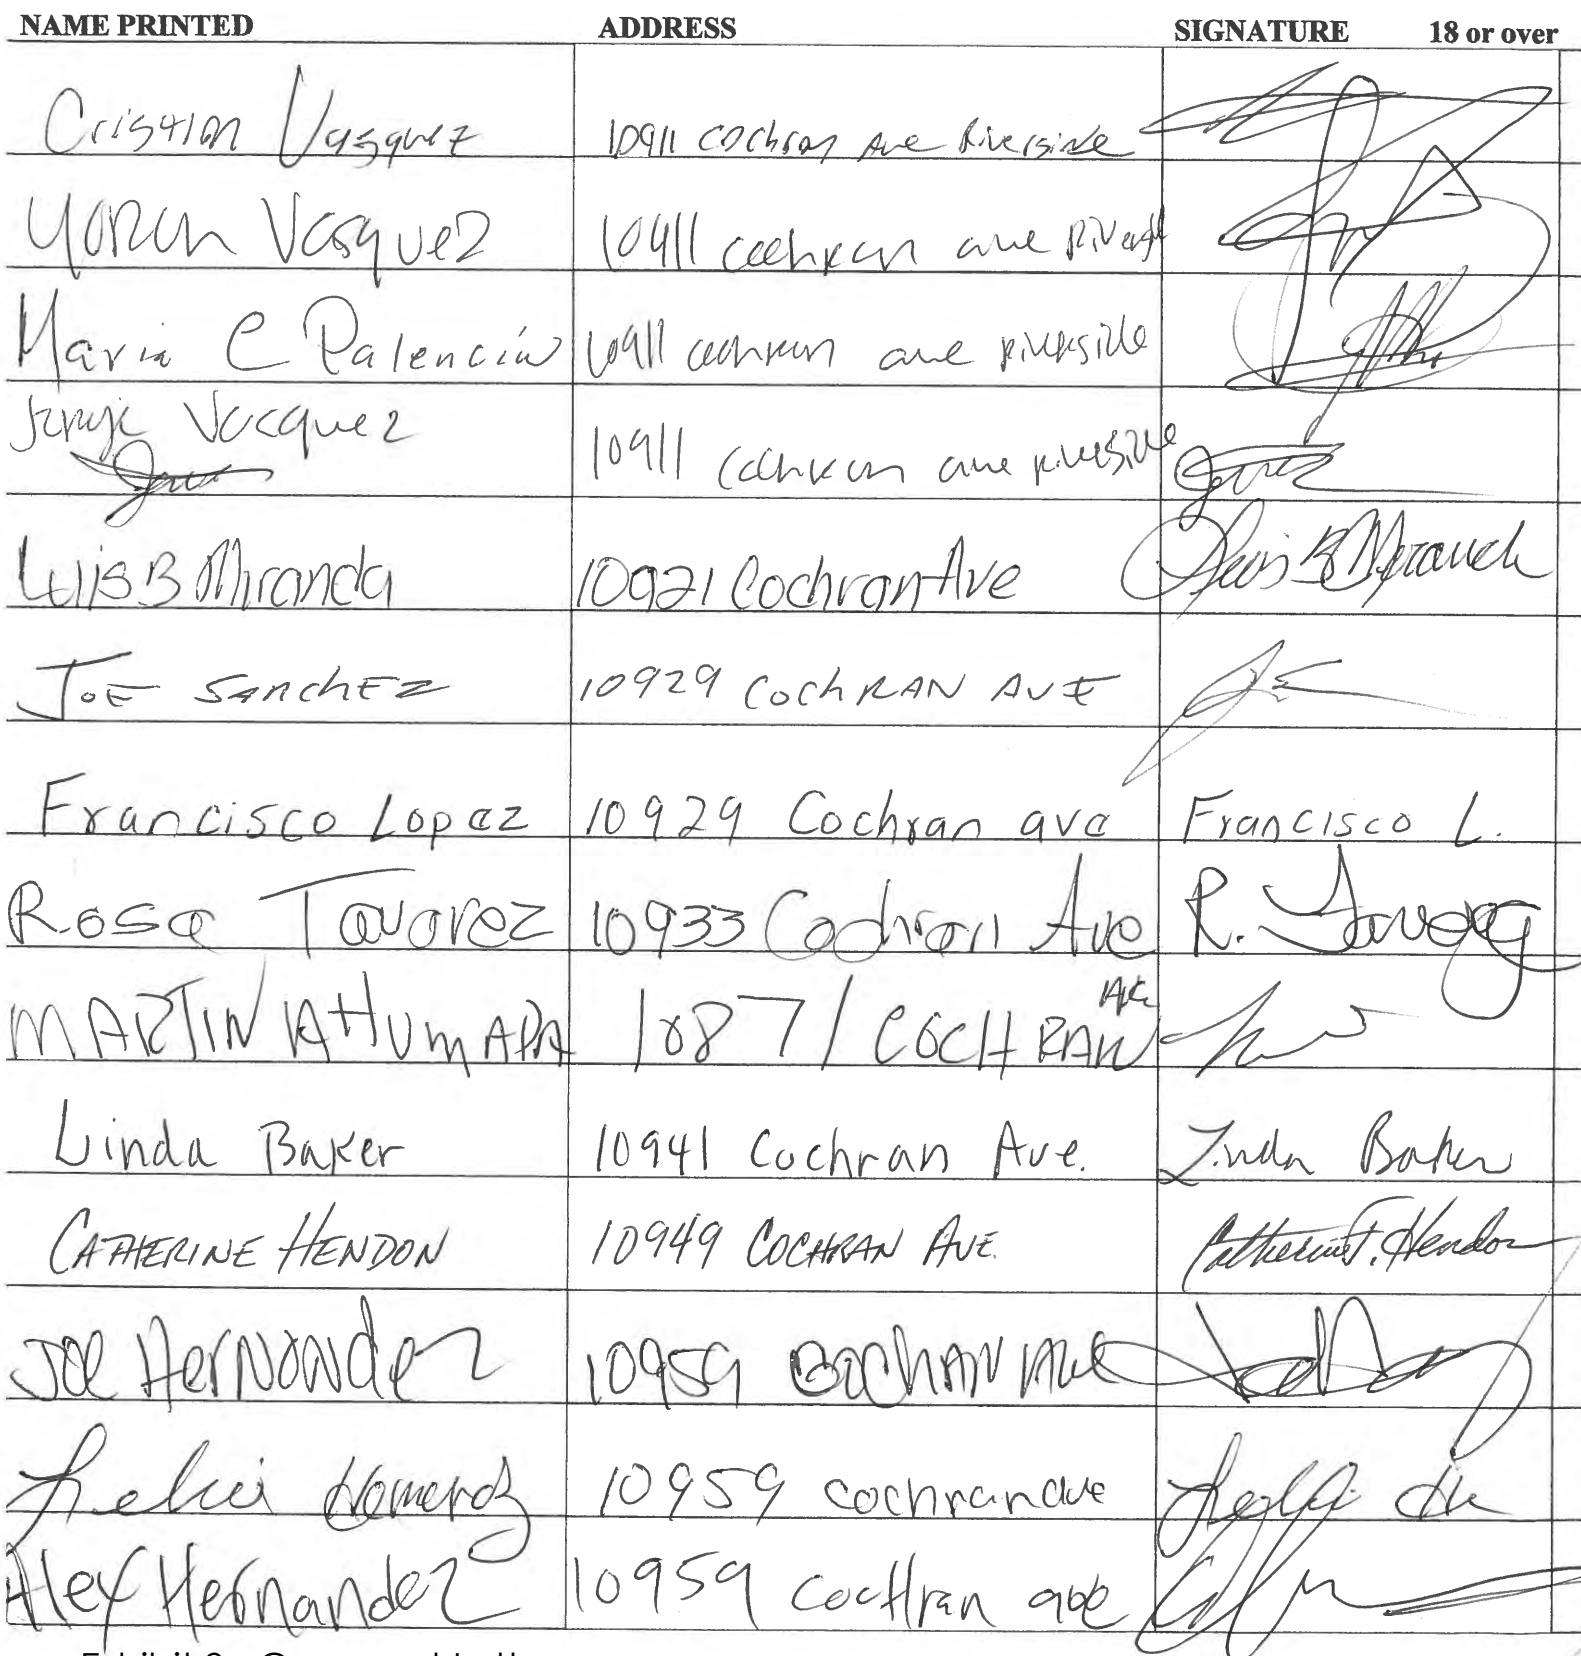 NAME PRINTED ADDRESS SIGNATURE 18 or over
Cristian Vasquez 10911 Cochran Ave Riverside
Vasquez 10911 cochran ave
Maria C Palencia 10911 cochran ave riverside
Jorge Vasquez 10911 cochran ave riverside
Luis B Miranda 10921 Cochran Ave Luis B Miranda
JOE SANCHEZ 10929 COCHRAN AVE
Francisco Lopez 10929 Cochran ave Francisco L.
Rosa Tavarez 10933 Cochran Ave R. Tavarez
MARTIN 10871 COCHRAN AVE
Linda Baker 10941 Cochran Ave. Linda Baker
CATHERINE HENDON 10949 COCHRAN AVE. Catherine F. Hendon
Joe HerNaNdez 10959 COCHRAN AVE
10959 cochran ave
Alex Hernandez 10959 Cochran ave